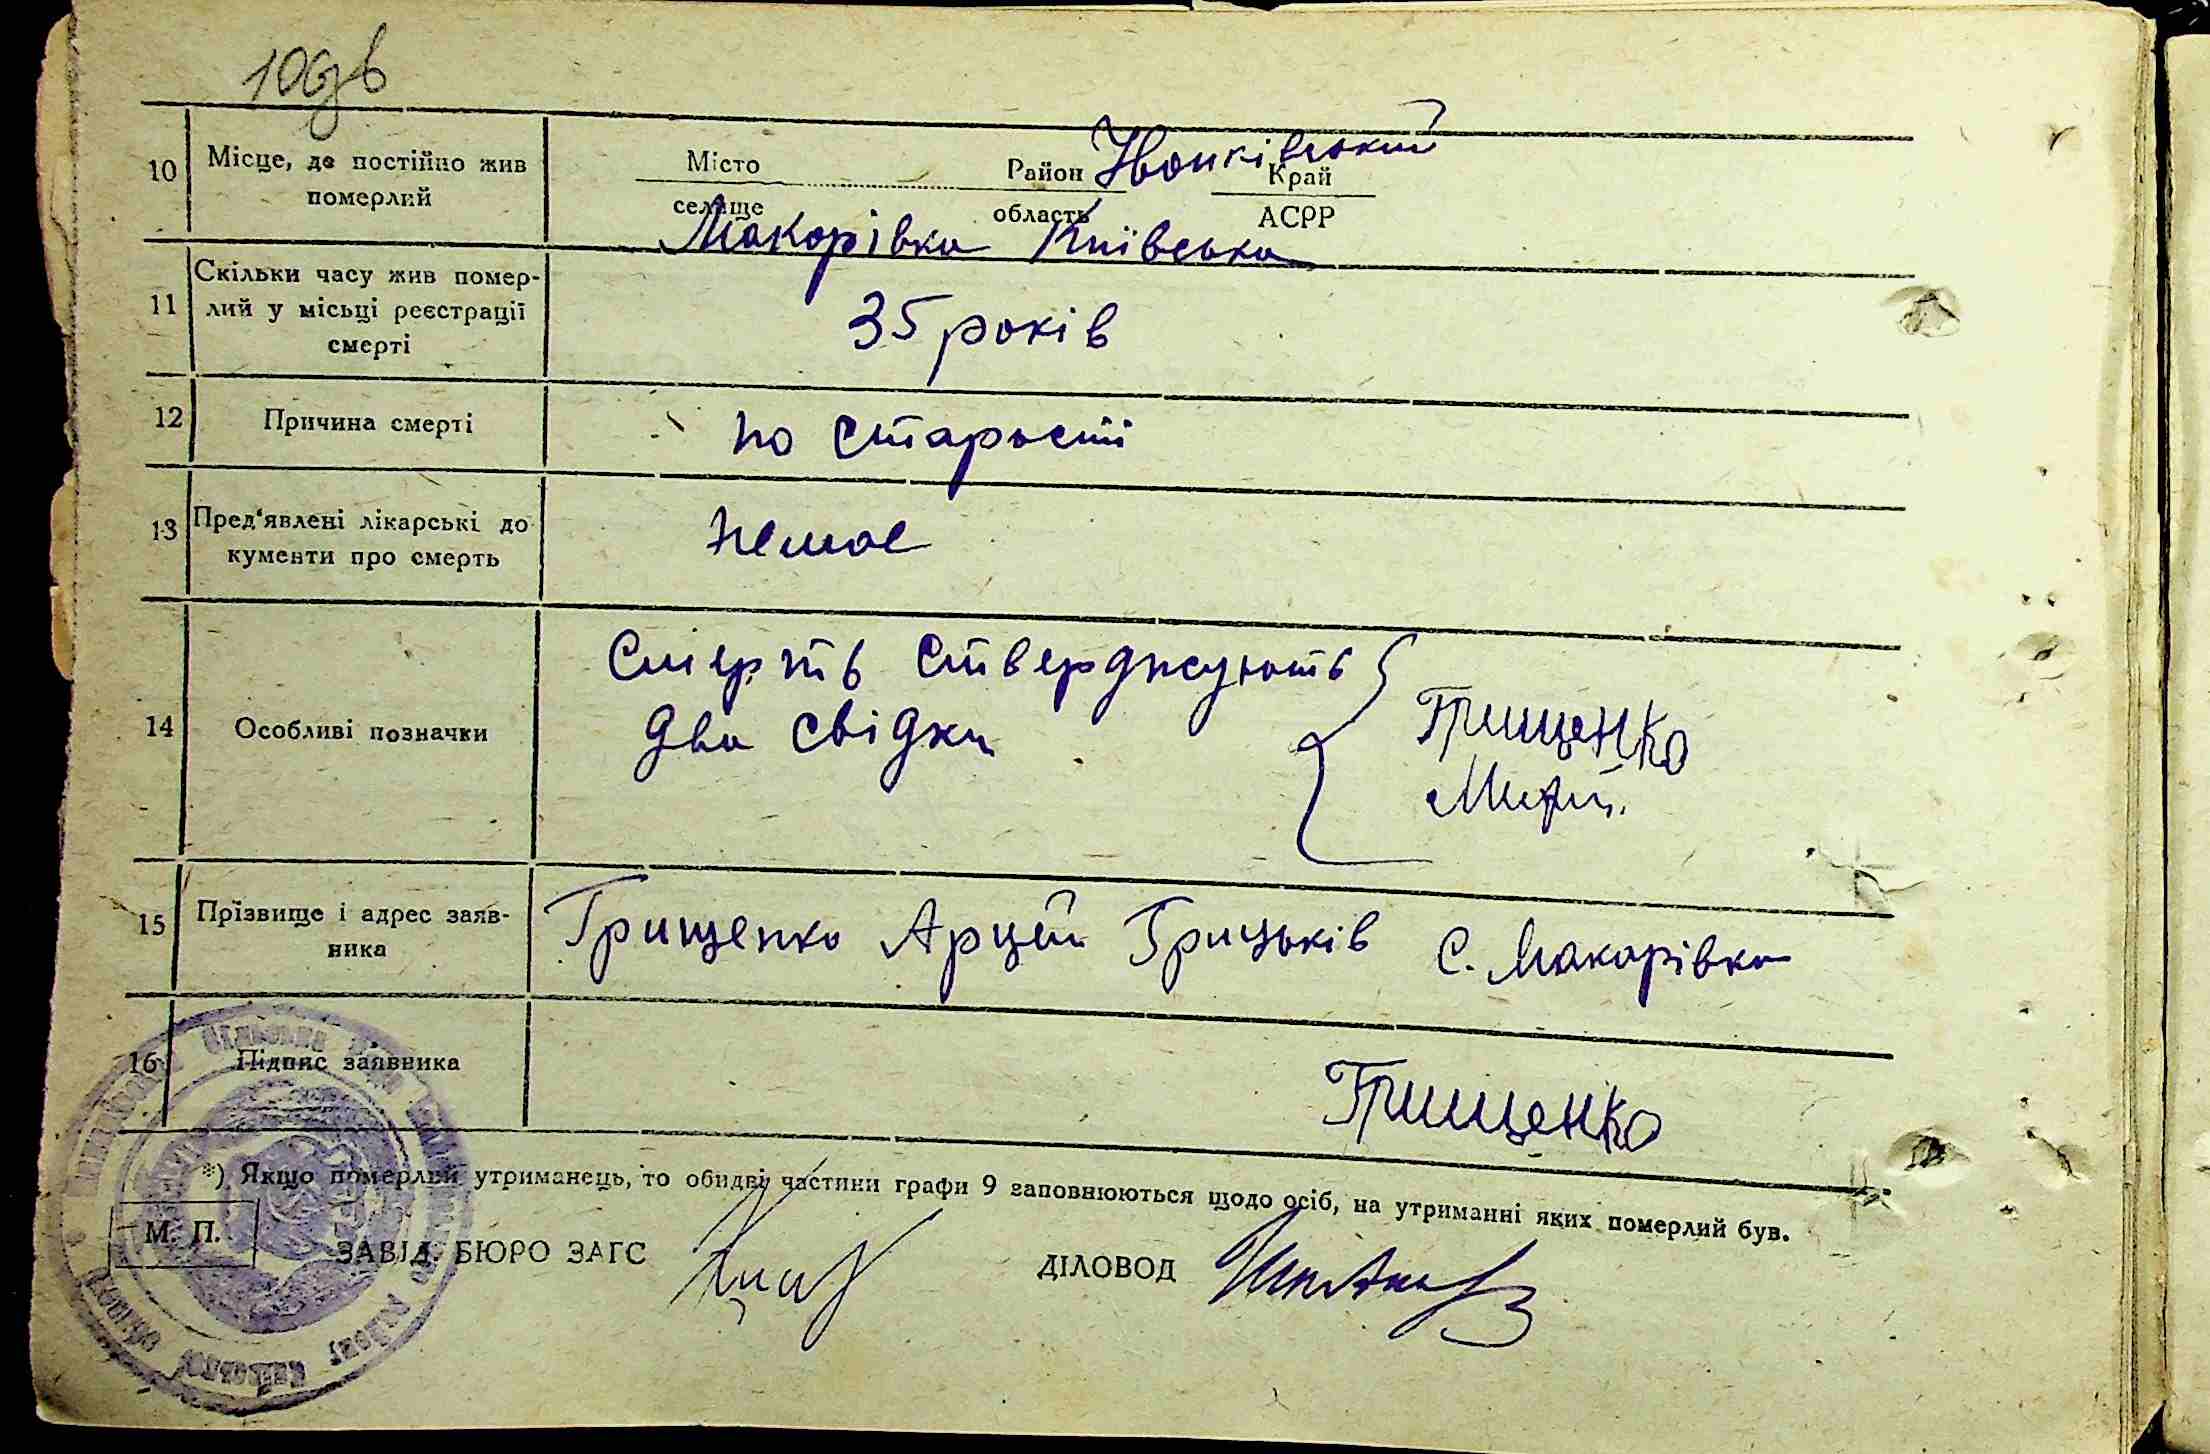 10 Місце, де постійно жив Місто Район Іванківський Край
померлий селище область АСРР
Макарівка Київська
11 Скільки часу жив помер-
лий у місьці реєстрації 35 років
смерті
12 Причина смерті по старості
13 Пред'явлені лікарські до немає
кументи про смерть
Смерть стверджують
14 Особливі позначки два свідки Грищенко
15 Прізвище і адрес заяв- Грищенко Грицьків с. Макарівка
ника
16 Підпис заявника Грищенко
*) Якщо померлий утриманець, то обидві частини графи 9 заповнюються щодо осіб, на утриманні яких померлий був.
М. П.
ЗАВІД. БЮРО ЗАГС ДІЛОВОД